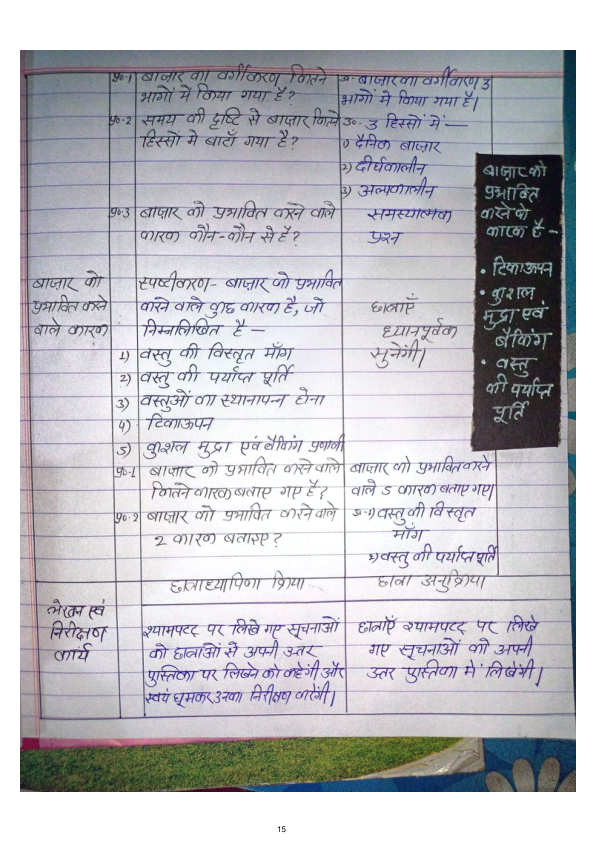 प्र०-1 बाज़ार का वर्गीकरण कितने
भागों में किया गया है?
उ०- बाज़ार का वर्गीकरण 3
भागों में किया गया है।
प्र०-2 समय की दृष्टि से बाज़ार कितने
हिस्सों मे बाटाँ गया है?
उ०- 3 हिस्सों में—
1) दैनिक बाज़ार
2) दीर्घकालीन
3) अल्पकालीन
प्र०-3 बाज़ार को प्रभावित करने वाले
कारक कौन-कौन से है?
समस्यात्मक
प्रश्न
बाज़ार को
प्रभावित करने
वाले कारक
स्पष्टीकरण- बाज़ार को प्रभावित
करने वाले कुछ कारक है, जो
निम्नलिखित है —
1) वस्तु की विस्तृत माँग
2) वस्तु की पर्याप्त पूर्ति
3) वस्तुओं का स्थानापन्न होना
4) टिकाऊपन
5) कुशल मुद्रा एवं बैकिंग प्रणाली
छात्राएँ
ध्यानपूर्वक
सुनेगी।
प्र०-1 बाज़ार को प्रभावित करने वाले
कितने कारक बताए गए है?
बाज़ार को प्रभावित करने
वाले 5 कारक बताए गए।
प्र०-2 बाज़ार को प्रभावित करने वाले
2 कारक बताइए?
उ०-1) वस्तु की विस्तृत
माँग
2) वस्तु की पर्याप्त पूर्ति
बाज़ार को
प्रभावित
करने वाले
कारक है -
• टिकाऊपन
• कुशल
मुद्रा एवं
बैकिंग
• वस्तु
की पर्याप्त
पूर्ति
छात्राध्यापिका क्रिया
छात्रा अनुक्रिया
लेखन एवं
निरीक्षण
कार्य
श्यामपटट पर लिखे गए सूचनाओं
को छात्राओं से अपनी उत्तर
पुस्तिका पर लिखने को कहेंगी और
स्वयं घूमकर उनका निरीक्षण करेंगी।
छात्राएँ श्यामपटट पर लिखे
गए सूचनाओं को अपनी
उत्तर पुस्तिका में लिखेंगी।
15